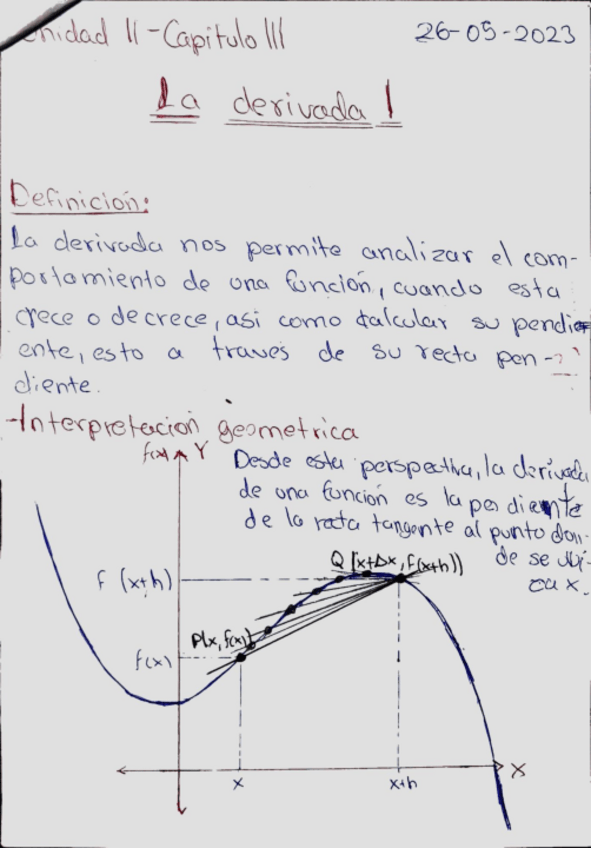 Unidad II - Capitulo III
26-05-2023
La derivada I
Definición:
La derivada nos permite analizar el com-
portamiento de una función, cuando esta
crece o decrece, asi como calcular su pendi
ente, esto a través de su recta pen-
diente.
-Interpretación geometrica
f(x) Y
Desde esta perspectiva, la derivada
de una función es la pendiente
de la recta tangente al punto don-
de se ubi-
ca x.
Q (x+Δx, F(x+h))
F (x+h)
P(x, f(x))
f(x)
X
x
x+h